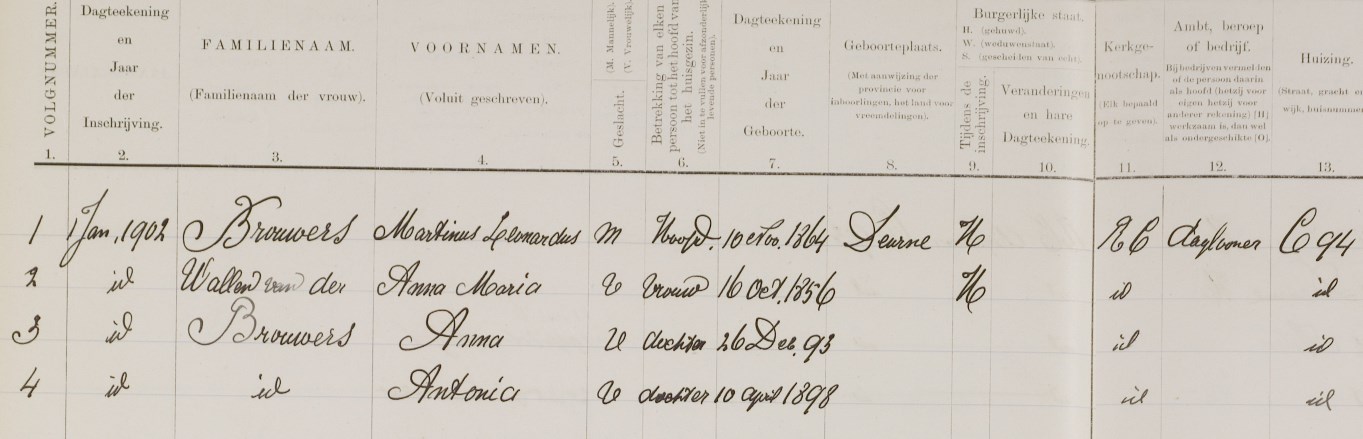 VOLGNUMMER. Dagteekening en Jaar der Inschrijving. FAMILIENAAM. (Familienaam der vrouw). VOORNAMEN. (Voluit geschreven). Geslacht. (M. Mannelijk). (V. Vrouwelijk). Betrekking van elken persoon tot het hoofd van het huisgezin. (Niet in te vullen voor afzonderlijk levende personen). Dagteekening en Jaar der Geboorte. Geboorteplaats. (Met aanwijzing der provincie voor inboorlingen, het land voor vreemdelingen). Burgerlijke staat. H. (gehuwd). W. (weduwenstaat). S. (gescheiden van echt). Tijdens de inschrijving. Veranderingen en hare Dagteekening. Kerkge- nootschap. (Elk bepaald op te geven). Ambt, beroep of bedrijf. Bij bedrijven vermelden of de persoon daarin als hoofd (hetzij voor eigen hetzij voor anderer rekening) [H] werkzaam is, dan wel als ondergeschikte [O]. Huizing. (Straat, gracht en wijk, huisnummer
1. 2. 3. 4. 5. 6. 7. 8. 9. 10. 11. 12. 13.
1 1 Jan, 1902 Brouwers Martinus Leonardus M Hoofd. 10 Nov. 1864 Deurne H R C daglooner C 94
2 id Wallen van der Anna Maria V vrouw 16 Oct. 1856 H id id
3 id Brouwers Anna V dochter 26 Dec. 93 id id
4 id id Antonia V dochter 10 april 1898 id id